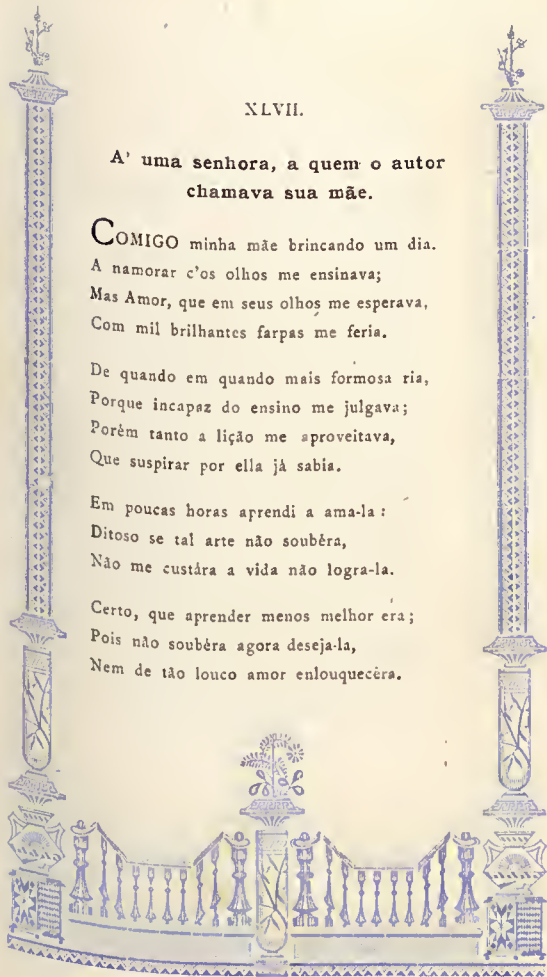 XLVII.
A' uma senhora, a quem o autor
chamava sua mãe.
COMIGO minha mãe brincando um dia.
A namorar c'os olhos me ensinava;
Mas Amor, que em seus olhos me esperava,
Com mil brilhantes farpas me feria.
De quando em quando mais formosa ria,
Porque incapaz do ensino me julgava;
Porém tanto a lição me aproveitava,
Que suspirar por ella já sabia.
Em poucas horas aprendi a ama-la :
Ditoso se tal arte não soubéra,
Não me custára a vida não logra-la.
Certo, que aprender menos melhor era;
Pois não soubéra agora deseja-la,
Nem de tão louco amor enlouquecêra.